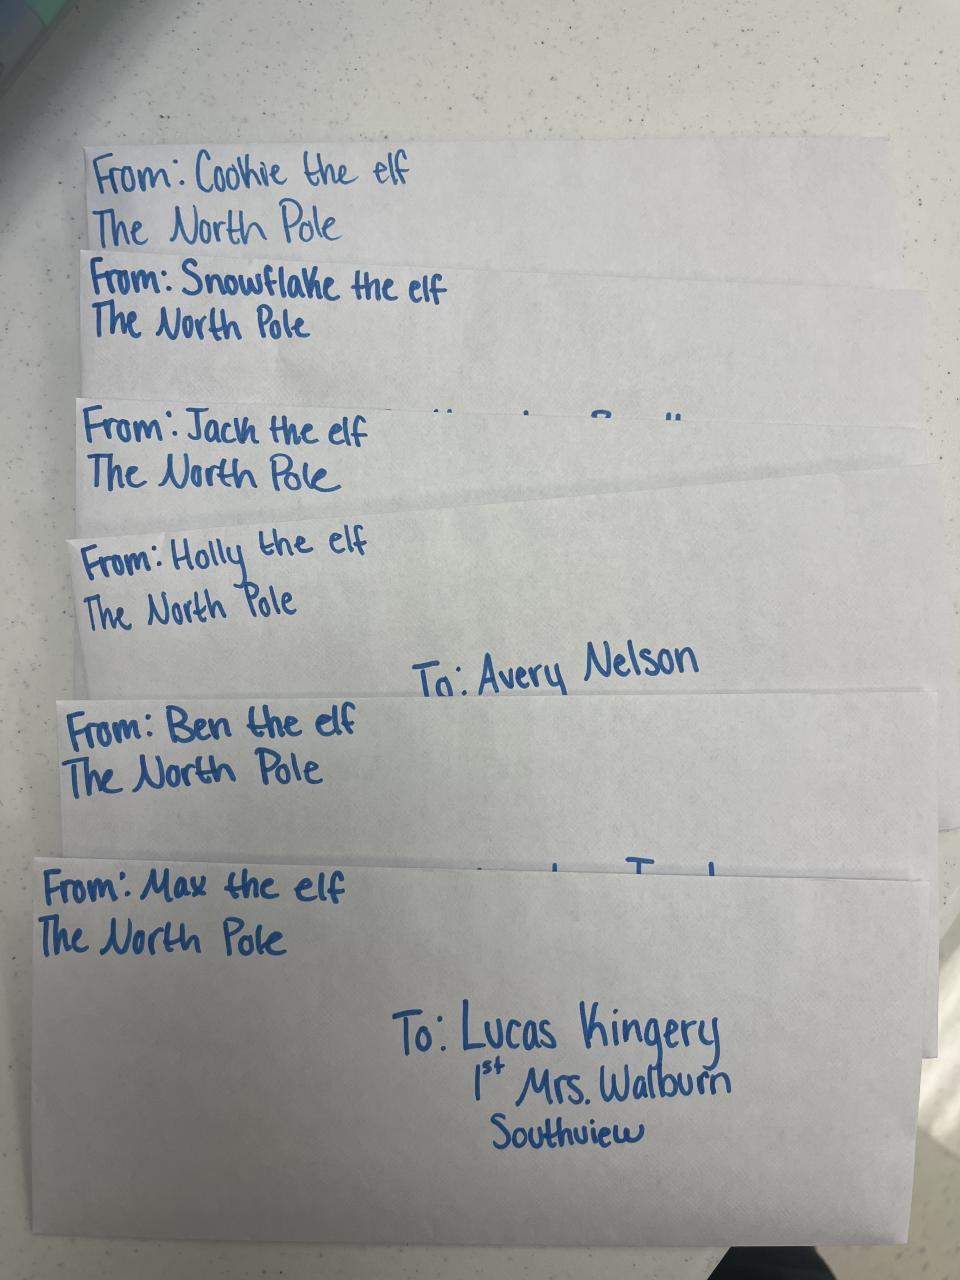 From: Cookie the elf
The North Pole
From: Snowflake the elf
The North Pole
From: Jack the elf
The North Pole
From: Holly the elf
The North Pole
To: Avery Nelson
From: Ben the elf
The North Pole
From: Max the elf
The North Pole
To: Lucas Kingery
1st Mrs. Walburn
Southview